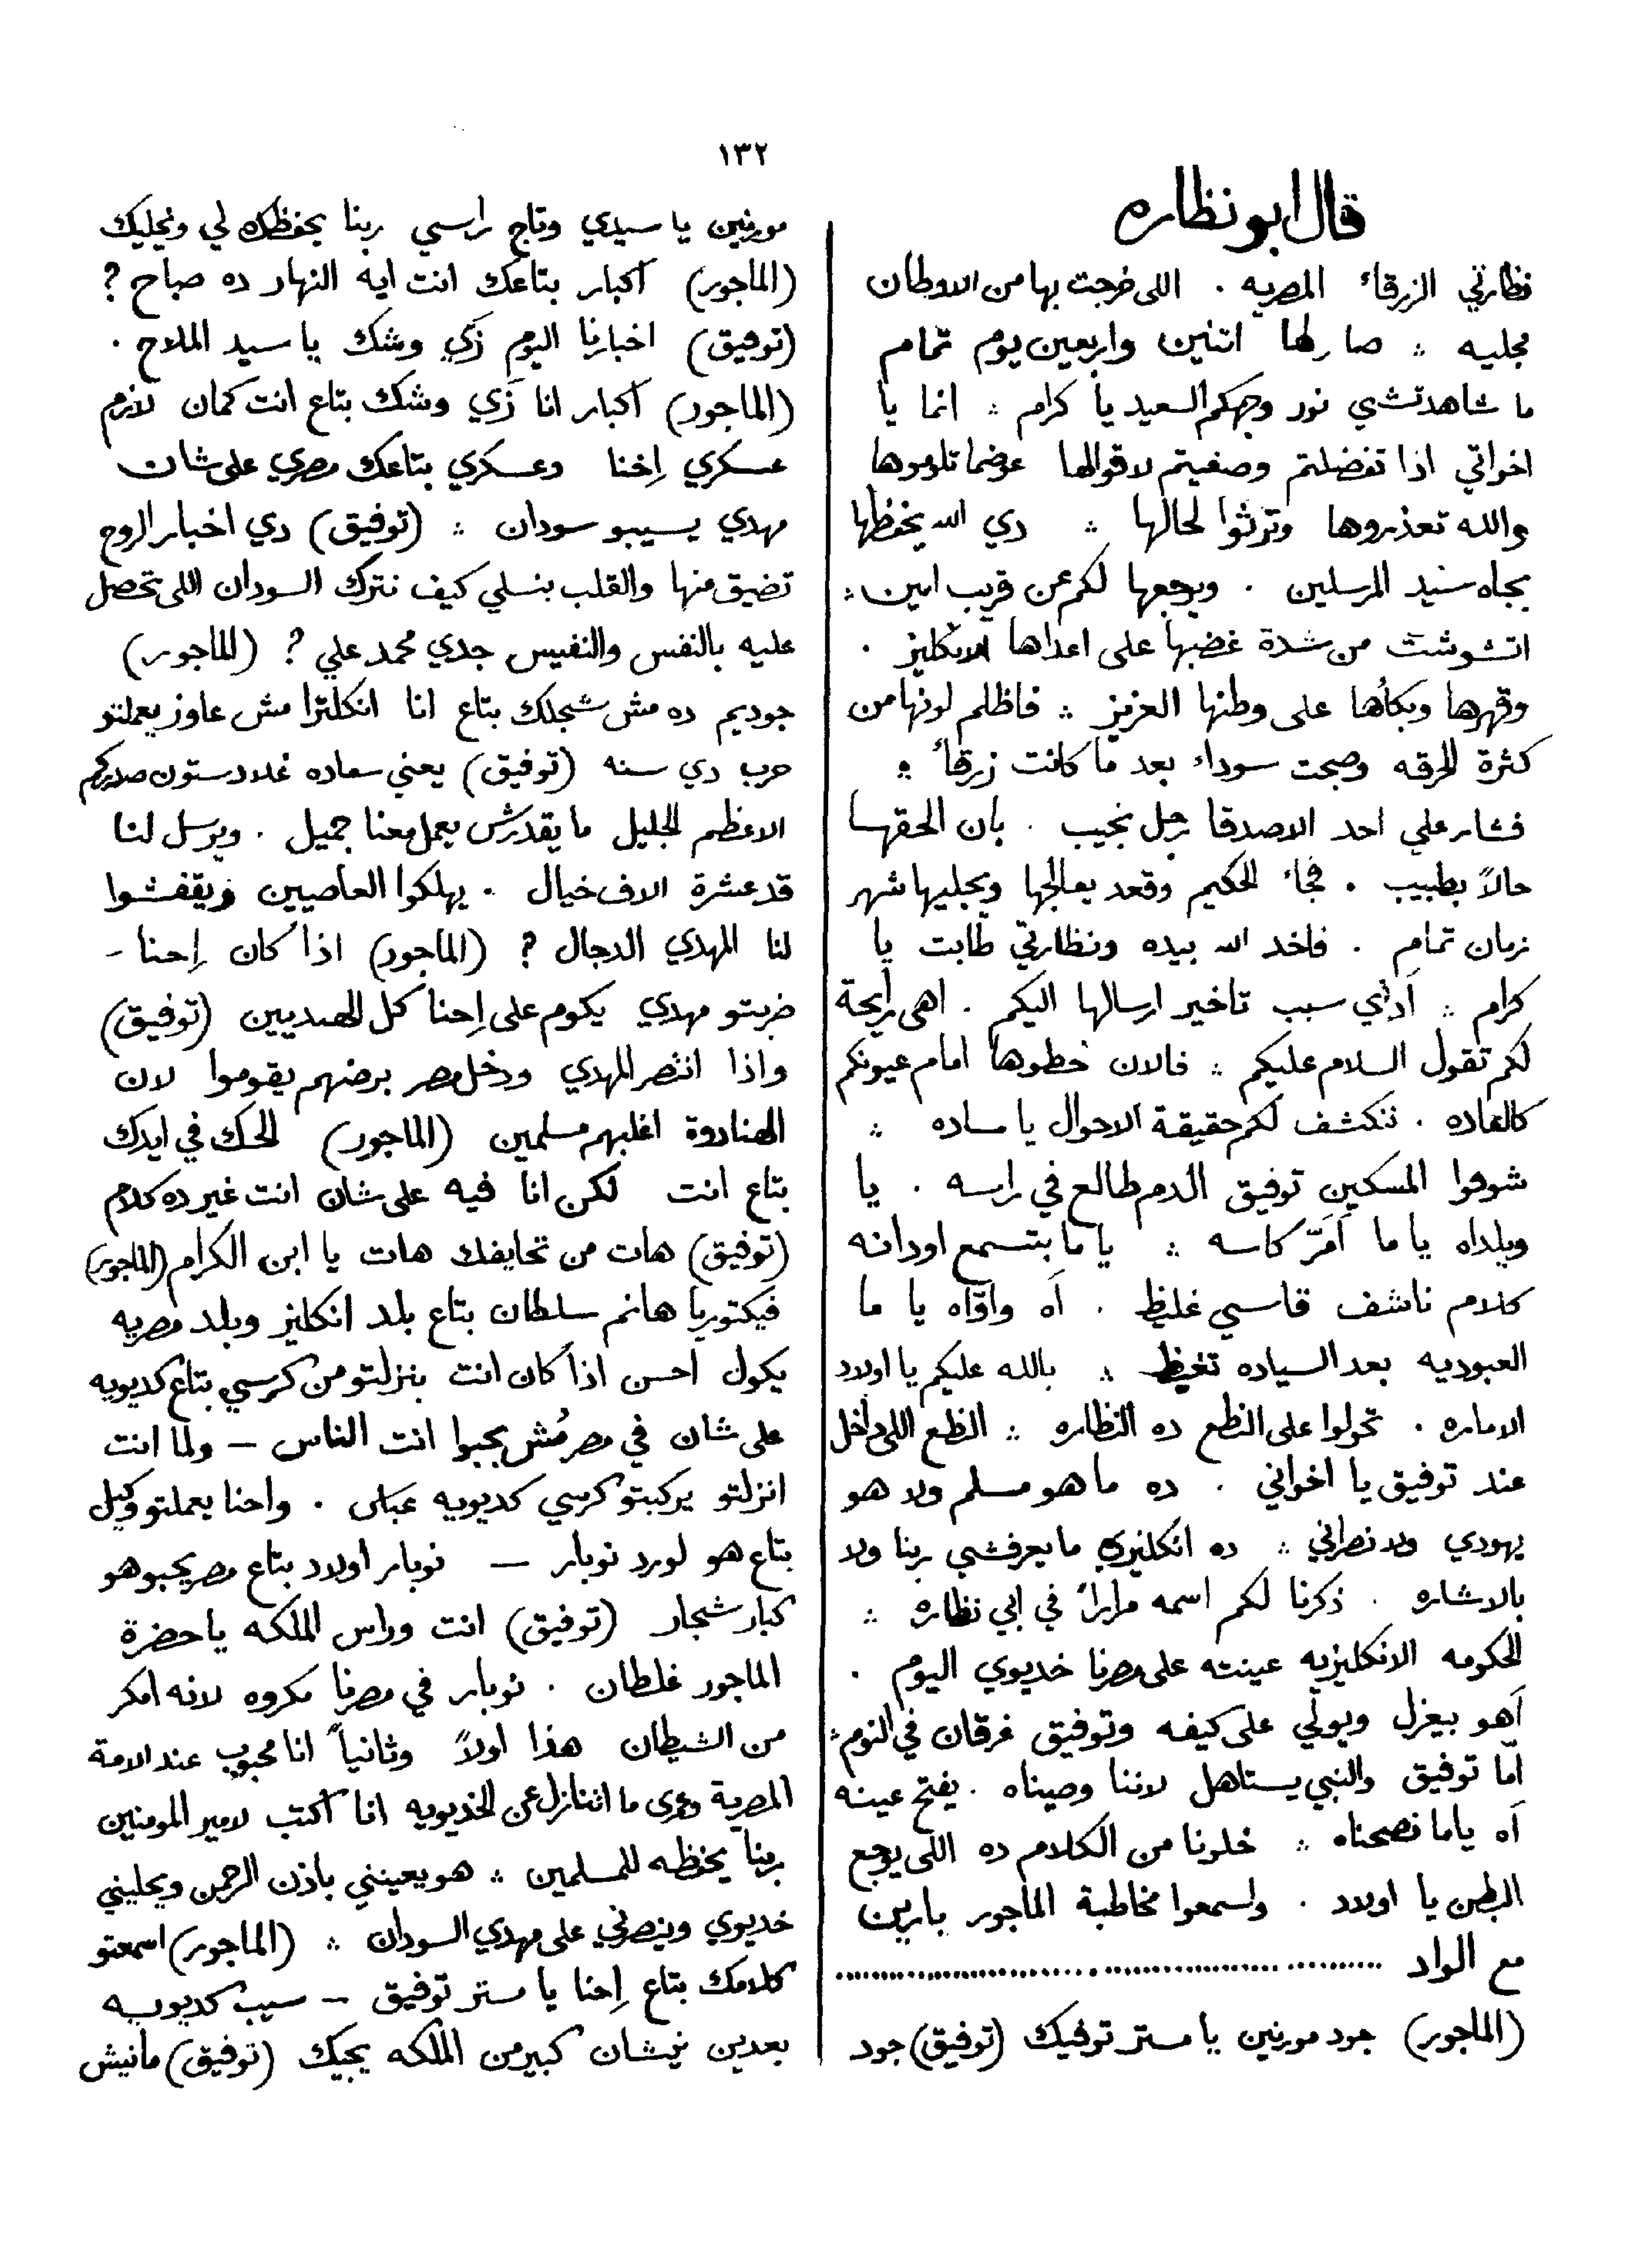 ١٣٢
قال ابو نظاره
نظارتي الزرقاء المصريه . اللى خرجت بها من الاوطان
مجليه ⁂ صار لها اتنين واربعين يوم تمام
ما شاهدتشي نور وجهكم السعيد يا كرام ⁂ انما يا
اخواتي اذا تفضلتم وصغيتم لاقوالها عوضما تلوموها
والله تعذروها وترثوا لحالها ⁂ دي الله يحفظها
بجاه سيد المرسلين . ويرجعها لكم عن قريب امين ⁂
اتشوشت من شدة غضبها على اعداها الانكليز .
وقهرها وبكأها على وطنها العزيز ⁂ فاظلم لونها من
كثرة الحرقه وصبحت سوداء بعد ما كانت زرقاء ⁂
فشار علي احد الاصدقا رجل نجيب . بان الحقها
حالاً بطبيب . فجاء الحكيم وقعد يعالجها ويجليها شهر
زمان تمام . فاخد الله بيده ونظارتي طابت يا
كرام ⁂ آدي سبب تاخير ارسالها اليكم . اهى رايحة
لكم تقول السلام عليكم ⁂ فالان خطوها امام عيونكم
كالعاده . تنكشف لكم حقيقة الاحوال يا ساده ⁂
شوفوا المسكين توفيق الدم طالع في راسه . يا
وبلداه ياما آمَرّ كاسه ⁂ ياما بتسمع اودانه
كلام ناشف قاسي غليظ . آه واوّاه يا ما
العبوديه بعد السياده تغيظ ⁂ بالله عليكم يا اولاد
الاماره . تحولوا على النظع ده النظاره ⁂ النظع اللى داخل
عند توفيق يا اخواني . ده ما هو مسلم ولا هو
يهودي ولا نصراني ⁂ ده انكليزي ما يعرفشي ربنا ولا
بالاشاره . ذكرنا لكم اسمه مراراً في ابي نظاره ⁂
الحكومه الانكليزيه عينته على مصرنا خديوي اليوم .
آهو بيعزل ويولّي على كيفه وتوفيق غرقان في النوم ⁂
امّا توفيق والنبي يستاهل لاننا وصيناه . يفتح عينه
آه ياما نصحناه ⁂ خلونا من الكلام ده اللى يوجع
البطن يا اولاد . واسمعوا مخاطبة الماجور بارين
مع الواد ........................................
(الماجور) جود مورنين يا مستر توفيك (توفيق) جود
مورنين يا سيدي وتاج راسي ربنا يحفظك لي ويخليك
(الماجور) آكبار بتاعك انت ايه النهار ده صباح ?
(توفيق) اخبارنا اليوم زَي وشك يا سيد الملاح .
(الماجور) آكبار انا زَي وشك بتاع انت كمان لازم
عسكري اِحنا وعسكري بتاعك مصري على شان
مهدي يسيبو سودان ⁂ (توفيق) دي اخبار الروح
تضيق منها والقلب ينسلي كيف نترك السودان اللى تحصل
عليه بالنفس والنفيس جدي محمد علي ? (الماجور)
جوديم ده مش شجلك بتاع انا انكلترا مش عاوز يعملتو
حرب دي سنه (توفيق) يعني سعاده غلادستون صدركم
الاعظم الجليل ما يقدرش يعمل معنا جميل . ويرسل لنا
قد عشرة الاف خيال . يهلكوا العاصيين ويقفشوا
لنا المهدي الدجال ? (الماجور) اذا كان اِحنا –
ضربتو مهدي يكوم على اِحنا كل الهنديين (توفيق)
واذا انتصر المهدي ودخل مصر برضهم يقوموا لان
الهنادوة اغلبهم مسلمين (الماجور) الحك في ايدك
بتاع انت لكن انا فيه على شان انت غير ده كلام
(توفيق) هات من تحايفك هات يا ابن الكرام (الماجور)
فيكتوريا هانم سلطان بتاع بلد انكليز وبلد مصريه
يكول احسن اذا كان انت ينزلتو من كرسي بتاع كديويه
على شان في مصر مُش يحبوا انت الناس — ولما انت
انزلتو يركبتو كرسي كديويه عباس . واحنا يعملتو وكيل
بتاع هو لورد نوبار — نوبار اولاد بتاع مصر يحبو هو
كبار شجار (توفيق) انت وراس الملكه يا حضرة
الماجور غلطان . نوبار في مصرنا مكروه لانه امكر
من الشيطان هذا اولاً وثانياً انا محبوب عند الامة
المصرية وعمرى ما اتنازل عن الخديويه انا اكتب لامير المومنين
ربنا يحفظه للمسلمين ⁂ هو يعينني باذن الرحمن ويخليني
خديوي وينصرني على مهدي السودان ⁂ (الماجور) اسمعتو
كلامك بتاع اِحنا يا مستر توفيق – سيب كديويه
بعدين نيشان كبير من الملكه يجيك (توفيق) مانيش